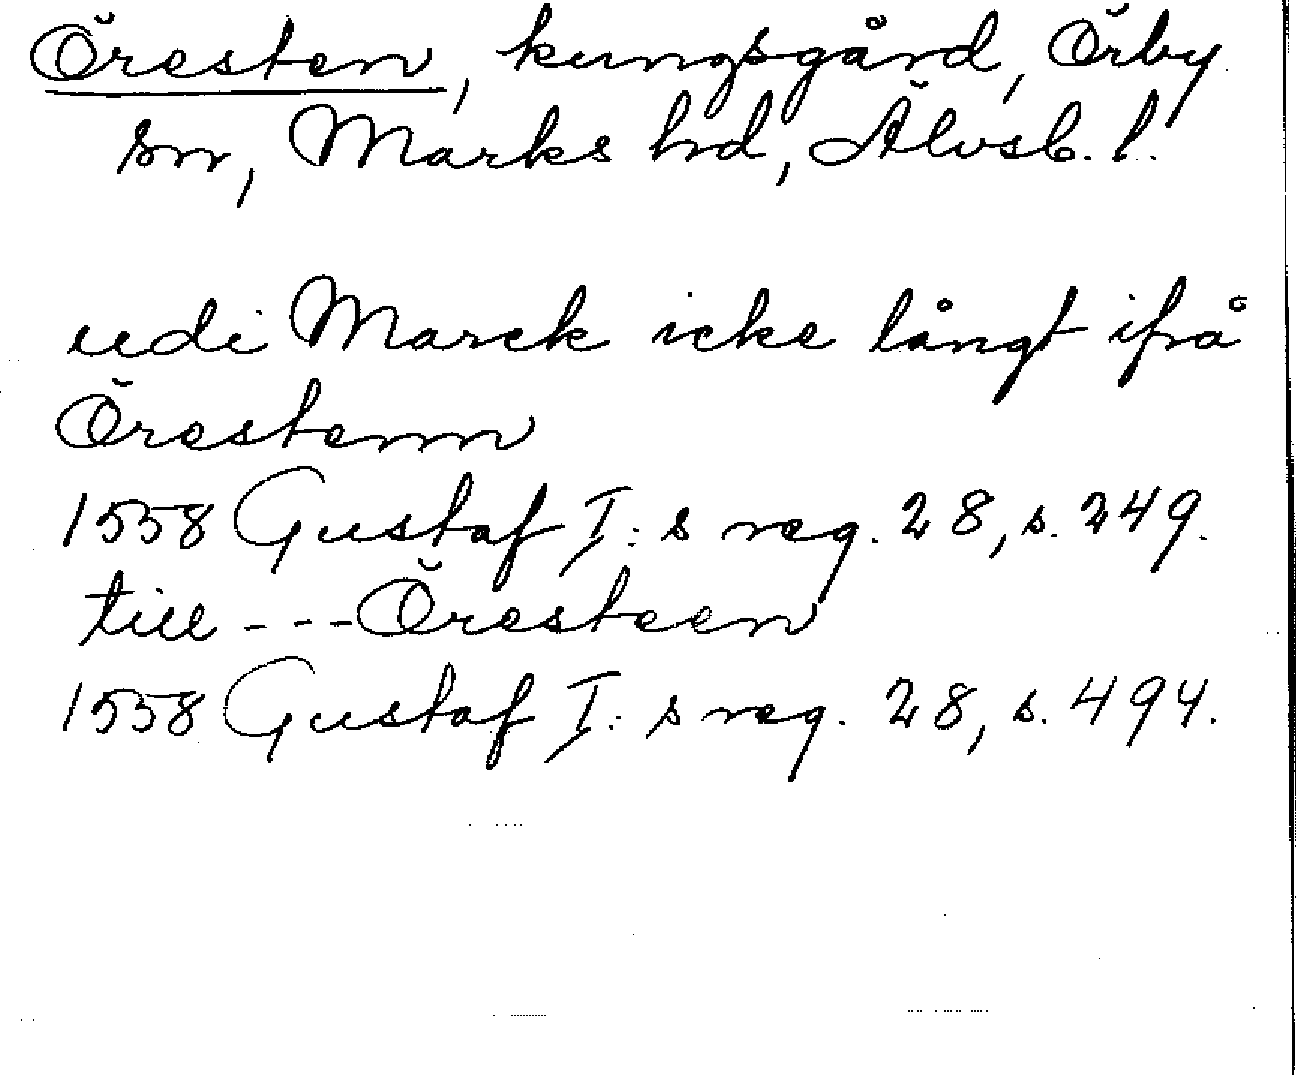 Öresten, kungsgård, Örby
sn, Marks hd, Älvsb. l.
udi Marck icke långt ifrå
Örestenn
1558 Gustaf I:s reg. 28, s. 249.
till ---Öresteen
1558 Gustaf I:s reg. 28, s. 494.